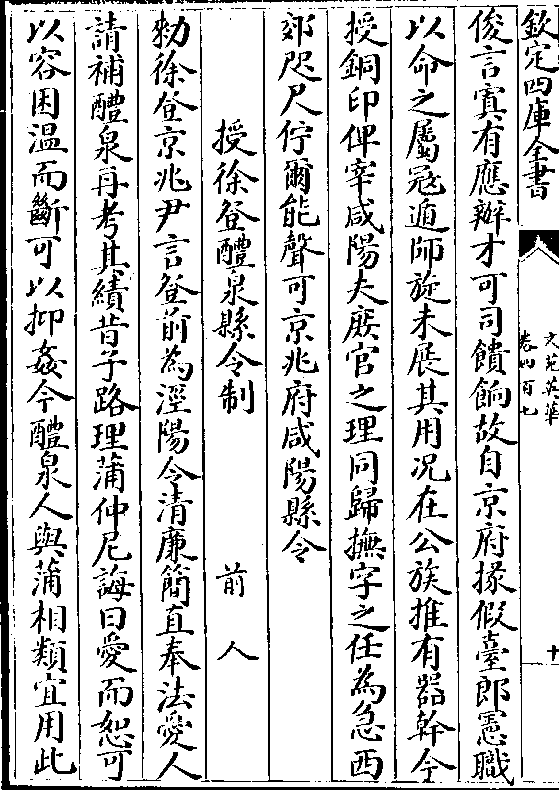 欽定四庫全書
文苑英華
卷四百七
十
俊言寘有應辦才可司饋餉故自京府掾假臺郎憲職
以命之屬寇遁師旋未展其用况在公族推有器幹今
授銅印俾宰咸陽夫厥官之理同歸撫字之任為急西
郊咫尺佇爾能聲可京兆府咸陽縣令
授徐登醴泉縣令制 前人
勅徐登京兆尹言登前為涇陽令清廉簡直奉法愛人
請補醴泉再考其績昔子路理蒲仲尼誨曰愛而恕可
以容困温而斷可以抑姦今醴泉人與蒲相類宜用此